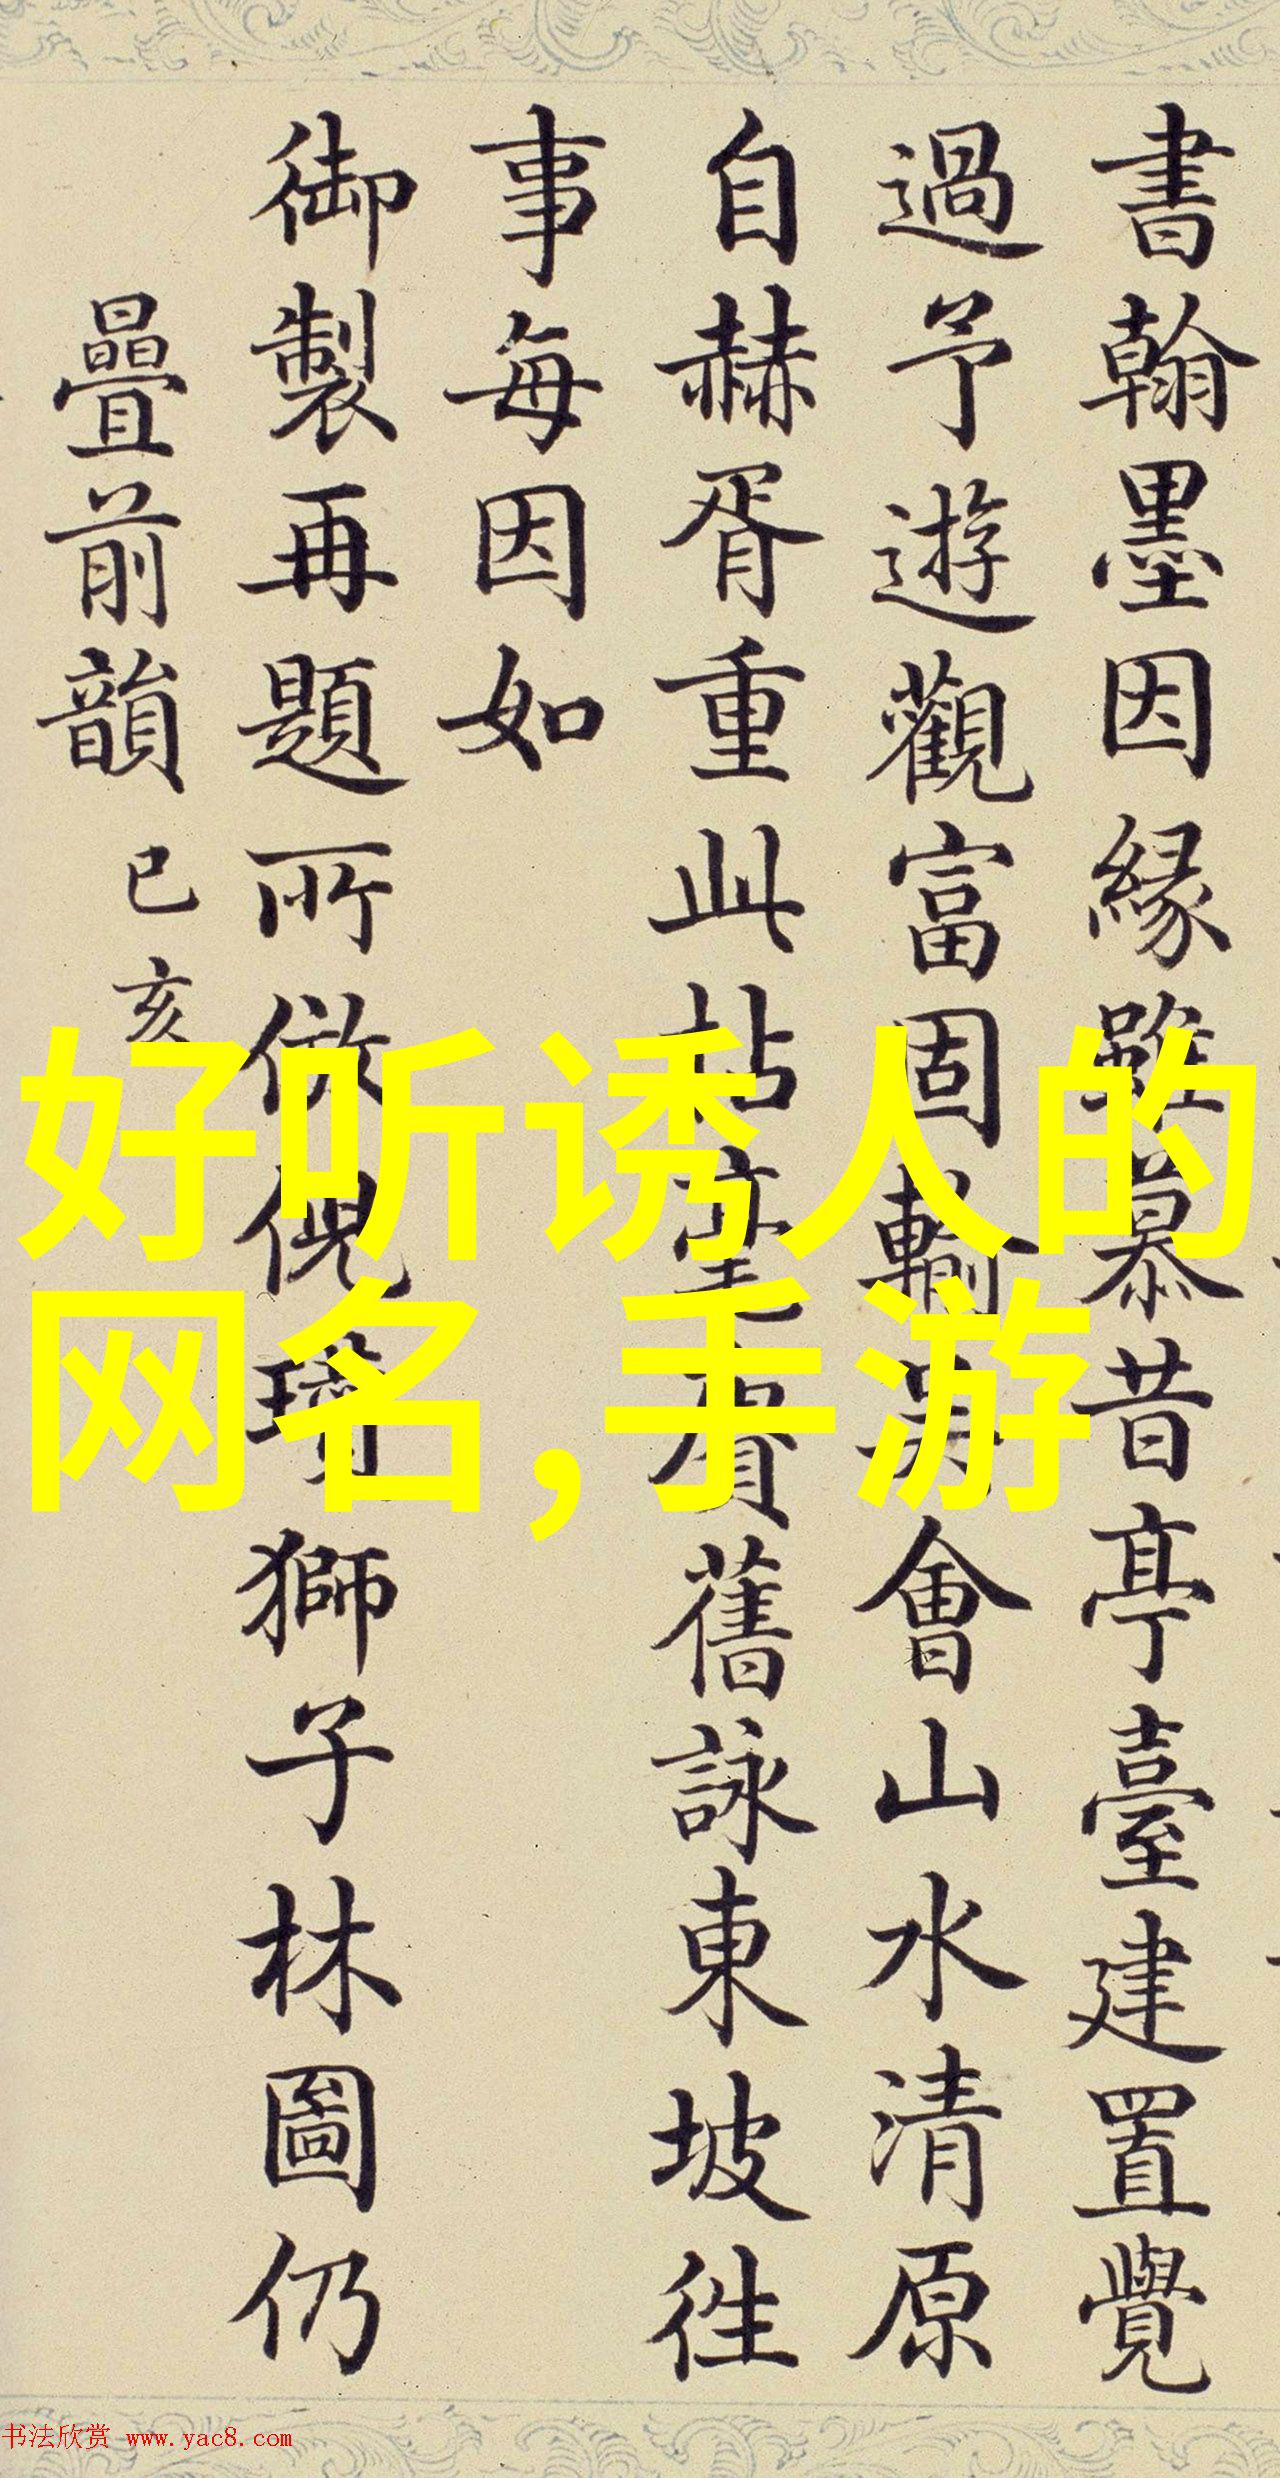 書翰墨因緣雖慕昔亭臺建置覺
過予遊觀富固輸吳會山水清原
自赫胥重此拈筆賡舊詠東坡徃
事每因如
御製再題所倣倪瓚獅子林圖仍
疊前韻 已亥
好听诱人的
网名,手游
书法欣赏 www.yac8.com